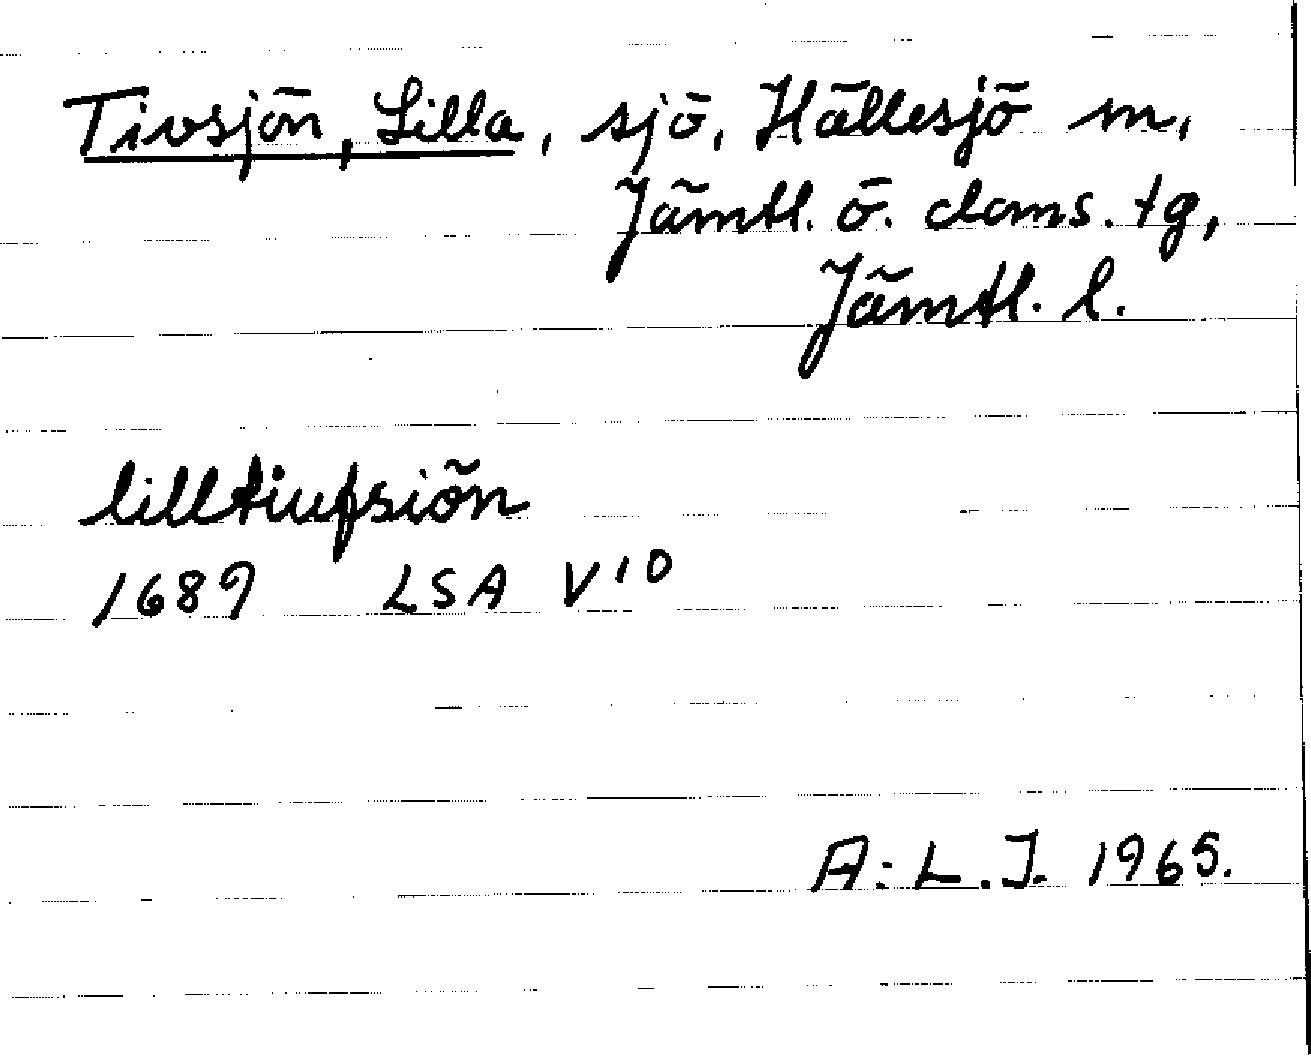 Tivsjön, Lilla, sjö, Hällesjö m,
Jämtl. ö. doms. tg,
Jämtl. l.
lilltiufsiön
1689 LSA V10
A.-L. J. 1965.